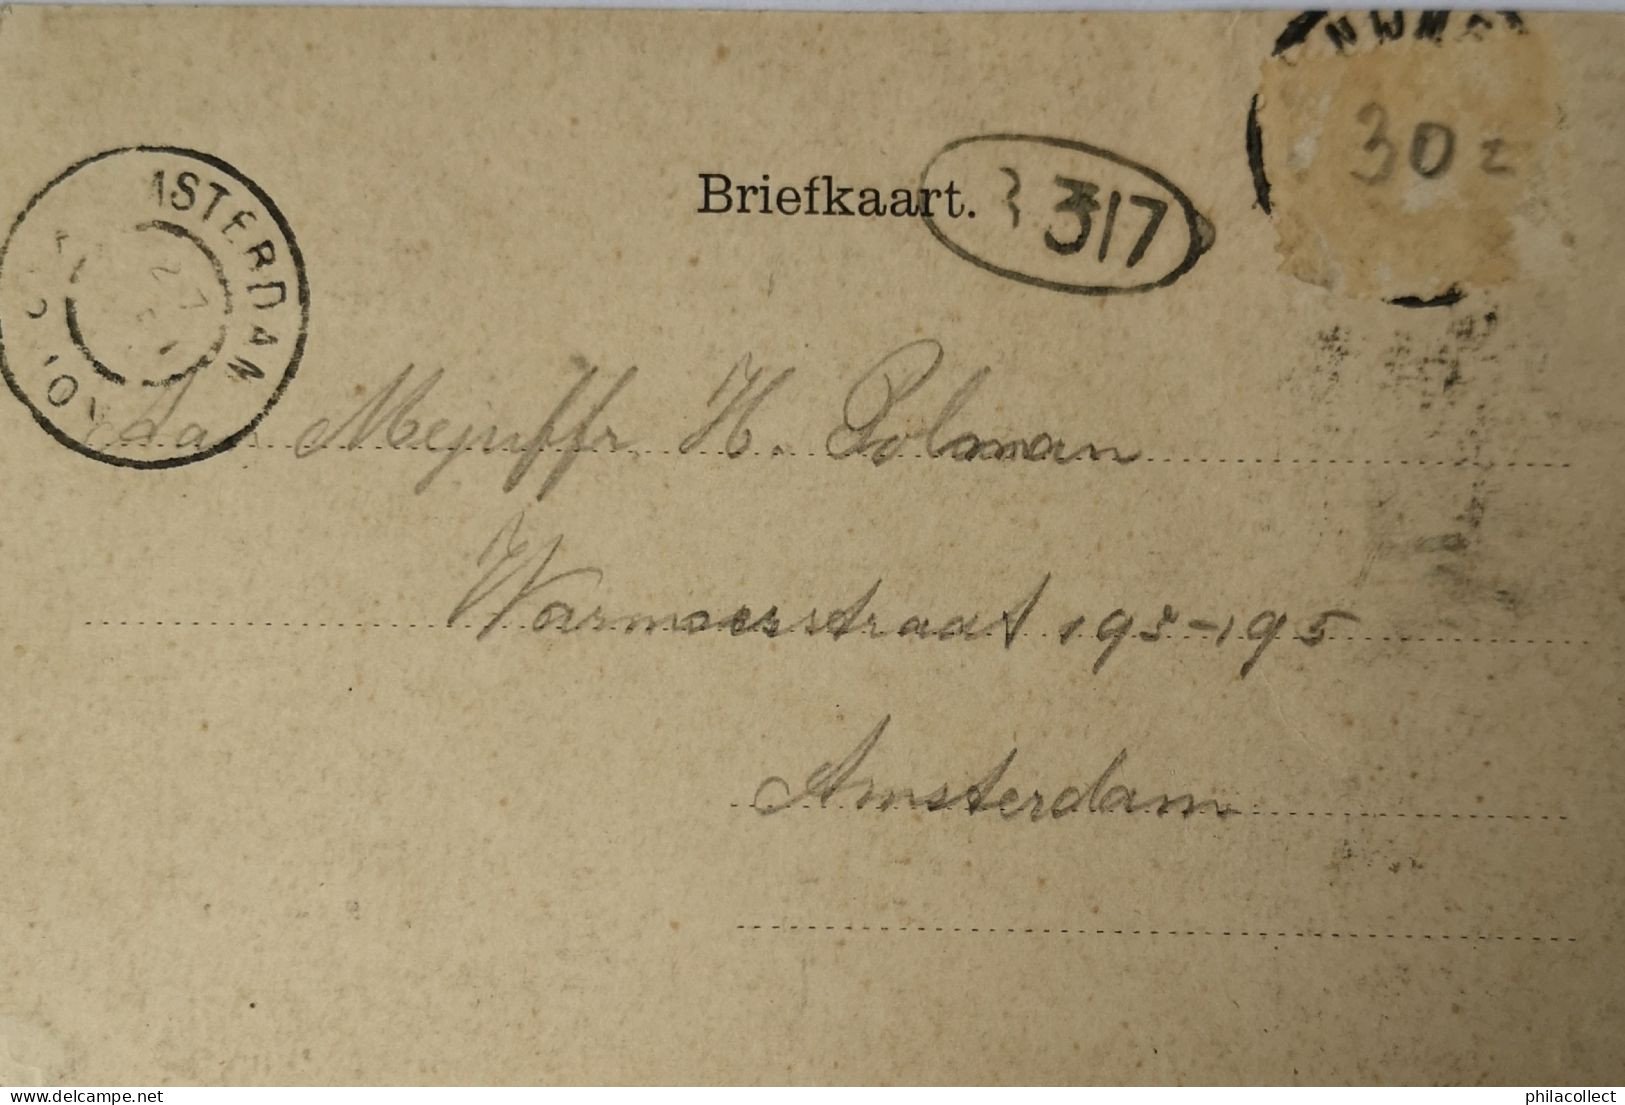 NIJME
30 z
Briefkaart.
317
AMSTERDAM
27
Aan Mejuffr. H. Polman
Warmoesstraat 193-195
Amsterdam
www.delcampe.net
philacollect